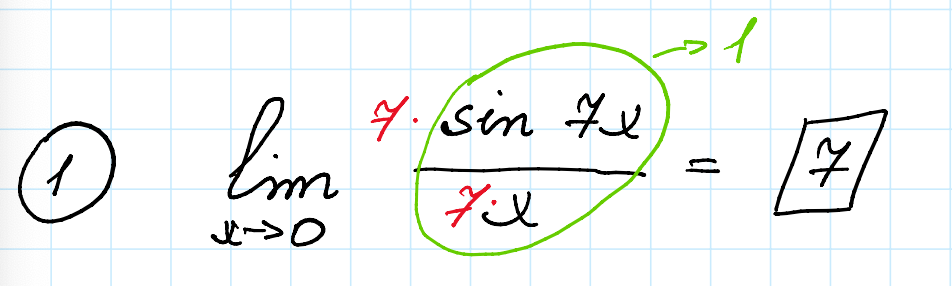 → 1
① lim x→0 7· sin 7x / 7·x = 7